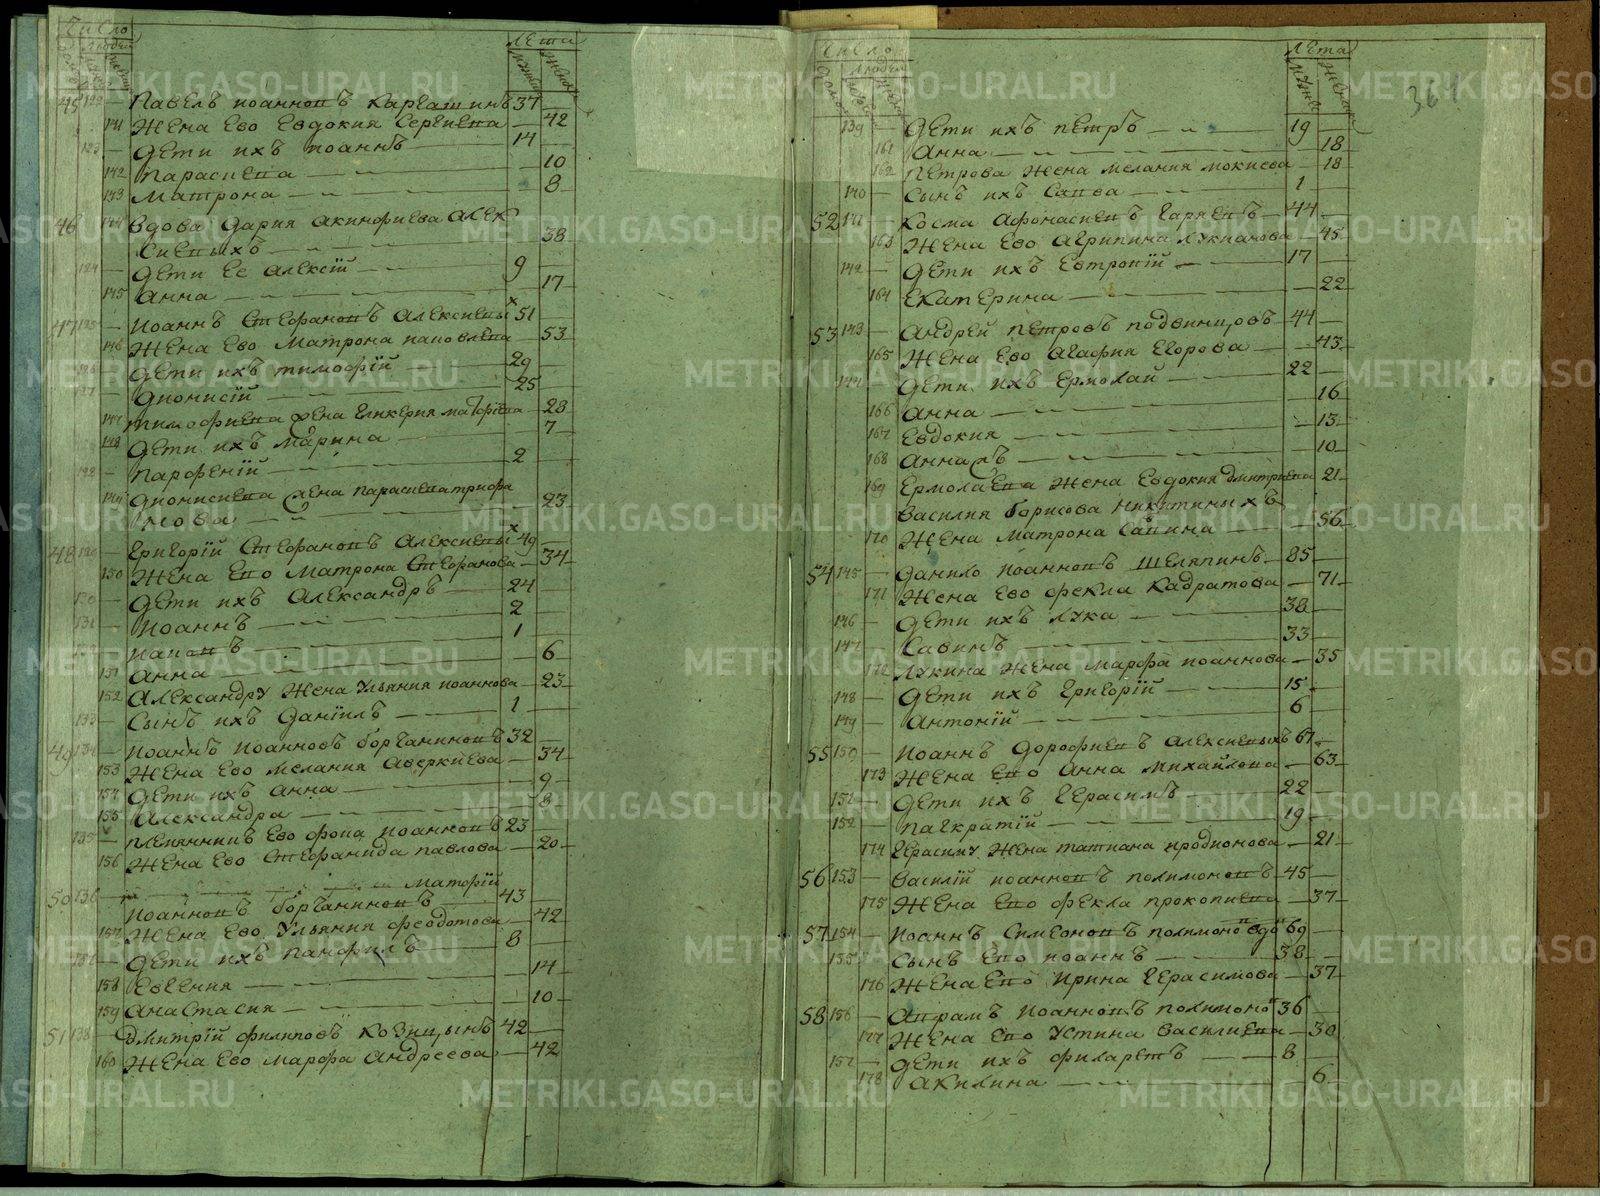 Число
Людей
Лета
45 122 — Павелъ Иоанновъ Каргашинъ 37 —
141 Жена Ево Евдокия Сергиева — 42
123 — дети ихъ Иоаннъ — 14
142 Параскева — 10
143 Матрона — 8
46 144 Вдова Дария Акинфиева Алек
сиевыхъ — 38
124 — дети Ее Алексiй — 9
145 Анна — 17
47 125 — Иоаннъ Стефановъ Алексиевы 51 —
146 Жена Ево Матрона — 53
126 — дети ихъ Тимофiй — 29
127 — Дионисiй — 25
147 Тимофиева жена Гликерия — 28
148 дети ихъ Марина — 7
128 — Парфенiй — 2
149 Дионисиева жена Параскева Трифо
нова — 23
48 129 — Григорiй Стефановъ Алексиевы 49 —
150 Жена Ево Матрона Стефанова — 34
130 — дети ихъ Александръ — 24
131 — Иоаннъ — 2
132 — — 1
151 Анна — 6
152 Александру жена Ульяния Иоаннова — 23
133 — Сынъ ихъ Данiилъ — 1
49 134 — Иоаннъ Иоанновъ Борчаниновъ 32 —
153 Жена Ево Мелания Аверкиева — 34
154 дети ихъ Анна — 9
155 Александра — 8
135 — племянникъ Ево Фока Иоанновъ 23
156 Жена Ево Стефанида Павлова — 20
50 136 — Матфiй
Иоанновъ Борчаниновъ — 43
157 Жена Ево Ульяния Феодотова — 42
137 — дети ихъ Панфилъ — 8
158 Евгения — 14
159 Анастасия — 10
51 138 — Дмитрiй Филиповъ Козицынъ 42 —
160 Жена Ево Марфа Андреева — 42
Число
Людей
Лета
139 — дети ихъ Петръ — 19
161 Анна — 18
162 Петрова жена Мелания Мокиева — 18
140 — Сынъ ихъ Савва — 1
52 141 — Косма Афонасиевъ Гаряевъ — 44 —
163 Жена Ево Агрипина Лукианова — 45
142 — дети ихъ Евтропiй — 17
164 Екатерина — 22
53 143 — Андрей Петровъ Подвинцовъ — 44 —
165 Жена Ево Агафия Егорова — 43
144 — дети ихъ Ермолай — 22
166 Анна — 16
167 Евдокия — 13
168 Анна — 10
169 Ермолаева жена Евдокия Дмитриева 21
Василия Борисова Никитиныхъ
170 Жена Матрона Савина — 56
54 145 — Данило Иоанновъ Шеляпинъ — 85 —
171 Жена Ево Фекла Кадратова — 71
146 — дети ихъ Лука — 38
147 — Савинъ — 33
172 Лукина жена Марфа Иоаннова — 35
148 — дети ихъ Григорiй — 15
149 — Антонiй — 6
55 150 — Иоаннъ Дорофиевъ Алексиевыхъ 67 —
173 Жена Ево Анна Михайлова — 63
151 — дети ихъ Герасимъ — 22
152 — Пагкратiй — 19
174 Герасиму жена Татиана Иродионова — 21
56 153 — Василiй Иоанновъ Полимоновъ — 45 —
175 Жена Ево Фекла Прокопиева — 37
57 154 — Иоаннъ Симеоновъ Полимоновъ вдо 69
155 — Сынъ Ево Иоаннъ — 38 —
176 Жена Ево Ирина Герасимова — 37
58 156 — Аврамъ Иоанновъ Полимоно 36
177 Жена Ево Устина Василиева — 30
157 — дети ихъ Филаретъ — 8
178 Акилина — 6
METRIKI.GASO-URAL.RU